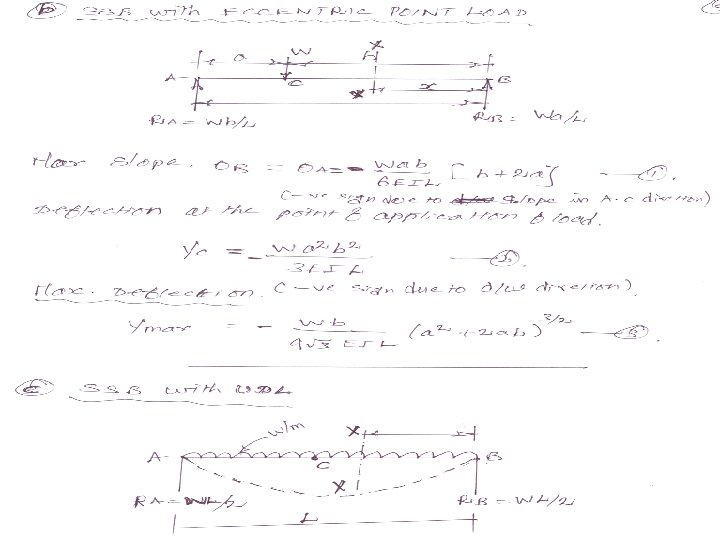 (b) SSB with ECCENTRIC POINT LOAD
a W X
A C X x B
RA = Wb/L RB = Wa/L
Max Slope. θB = θA = - Wab / 6EIL [b + 2a] —— (1).
(-ve sign due to slope in A.C direction)
Deflection at the point of application of load.
yc = - Wa²b² / 3EIL —— (2).
Max. Deflection. (-ve sign due to d/w direction)
Ymax = - Wb / 9√3 EIL (a² + 2ab)^3/2 —— (3).
(c) SSB with UDL
w/m X
A C B
X
RA = WL/2 RB = WL/2
L